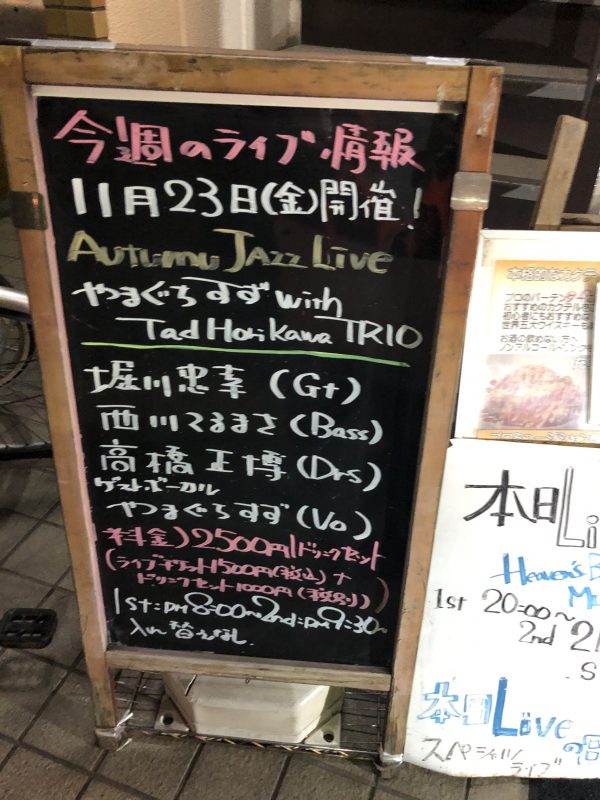 今週のライブ情報
11月23日(金)開催!
Autumu Jazz Live
やまぐちすず with
Tad Horikawa TRIO
堀川忠幸 (Gt)
西川てるまさ (Bass)
高橋正博 (Drs)
ゲストボーカル
やまぐちすず (Vo)
料金) 2500円 1ドリンクセット
(ライブチケット1500円(税込) +
ドリンクセット1000円 (税別))
1st=PM8=00~ 2nd=PM9=30~
入れ替えなし
本格的なカクテ
プロのバーテンダー
おすすめのカクテル
初心者にもおすすめ
世界五大ウイスキー
お酒の飲めない方
ノンアルコール
本日Li
Heaven's B
1st 20=00~
2nd 2
S
本日Live
スペシャル
ライブ